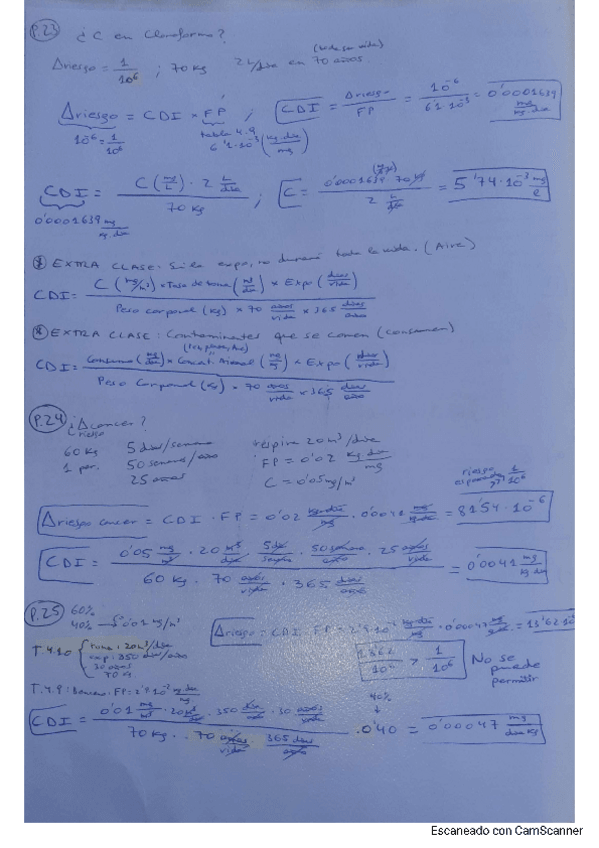 P.23 ¿C en Cloroformo?
Δriesgo = 1/10⁶ ; 70 kg 2 L/día en 70 años. (toda su vida)
Δriesgo = CDI × FP ; CDI = Δriesgo/FP = 10⁻⁶/6'1·10⁻³ = 0'0001639 mg/kg·día
10⁻⁶ = 1/10⁶ tabla 4.9 6'1·10⁻³ (kg·día/mg)
CDI = C (mg/L) · 2 L/día / 70 kg ; C = 0'0001639 · 70 kg / 2 L/día = 5'74·10⁻³ mg/l
0'0001639 mg/kg·día
* EXTRA CLASE: Si la expo, no durará toda la vida. (Aire)
CDI = C (mg/m³) × Tasa de toma (m³/día) × Expo (días/vida) / Peso corporal (kg) × 70 años/vida × 365 días/año
* EXTRA CLASE: Contaminantes que se comen (consumen)
CDI = Consumo (mg/día) × Concent. Animal (mg/kg) × Expo (días/vida) / Peso Corporal (kg) × 70 años/vida × 365 días/año
P.24 ¿Δcancer?
riesgo
60 kg 5 días/semana respira 20 m³/día
1 per. 50 semanas/año FP = 0'02 kg día/mg
25 años C = 0'05 mg/m³
riesgo 1/10⁶
Δriesgo cancer = CDI · FP = 0'02 kg·día/mg · 0'0041 mg/kg·día = 81'54·10⁻⁶
CDI = 0'05 mg/m³ · 20 m³/día · 5 día/semana · 50 semana/año · 25 años/vida / 60 kg · 70 años/vida · 365 días/año = 0'0041 mg/kg día
P.25 60%
40% → 0'01 mg/m³ Δriesgo = CDI · FP = 2'9·10⁻² · 0'00047 = 13'62·10
T.4.10 { toma: 20 m³/día
exp: 350 días/año
30 años
70 kg
13'62/10⁶ > 1/10⁶ No se puede permitir
T.4.9: Benceno · FP = 2'9·10⁻² kg día/mg
40%
CDI = 0'01 mg/m³ · 20 m³/día · 350 días/año · 30 años/vida / 70 kg · 70 años/vida · 365 días/año · 0'40 = 0'00047 mg/día kg
Escaneado con CamScanner